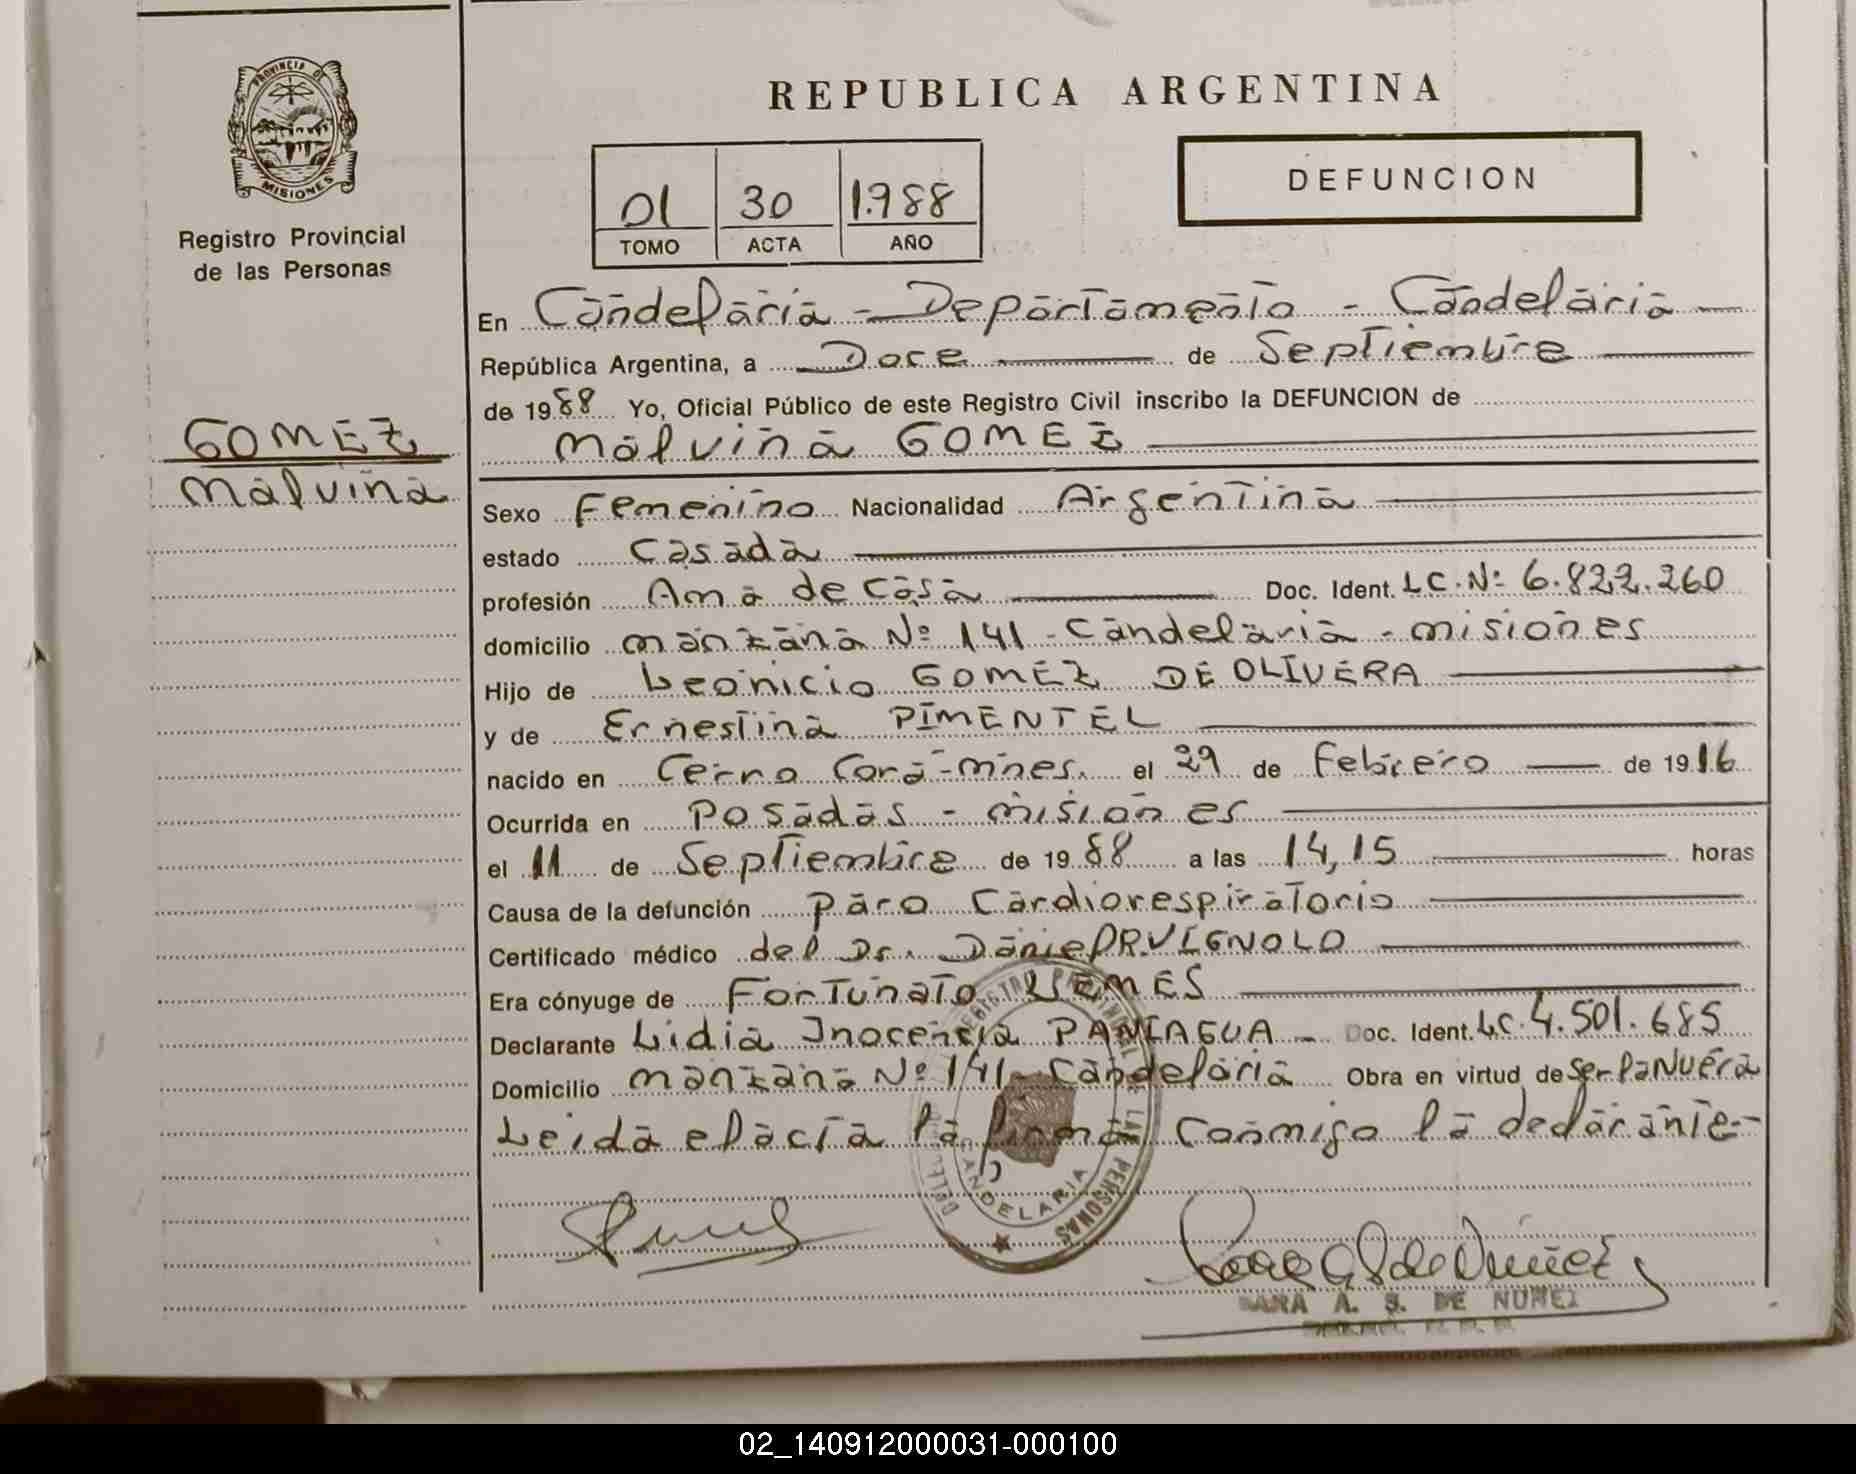 PROVINCIA DE
MISIONES
Registro Provincial
de las Personas
GOMEZ
Malvina
REPUBLICA ARGENTINA
01 30 1.988
TOMO ACTA AÑO
DEFUNCION
En Candelaria - Departamento - Candelaria
República Argentina, a Doce de Septiembre
de 1988 Yo, Oficial Público de este Registro Civil inscribo la DEFUNCION de
Malvina GOMEZ
Sexo Femenino Nacionalidad Argentina
estado Casada
profesión Ama de Casa Doc. Ident. LC.Nº 6.822.260
domicilio manzana Nº 141 - Candelaria - misiones
Hijo de Leonicio GOMEZ DE OLIVERA
y de Ernestina PIMENTEL
nacido en Cerro Corá - mnes. el 29 de Febrero de 1916
Ocurrida en Posadas - misiones
el 11 de Septiembre de 1988 a las 14,15 horas
Causa de la defunción paro Cardiorespiratorio
Certificado médico del Dr. Daniel R. VIGNOLO
Era cónyuge de Fortunato
Declarante Lidia Inocencia PANIAGUA - Doc. Ident. LC. 4.501.685
Domicilio manzana Nº 141 - Candelaria Obra en virtud de ser la Nuera
Leida el acta la firma Conmigo la declarante -
CANDELARIA
SARA A. S. DE NUÑEZ
02_140912000031-000100